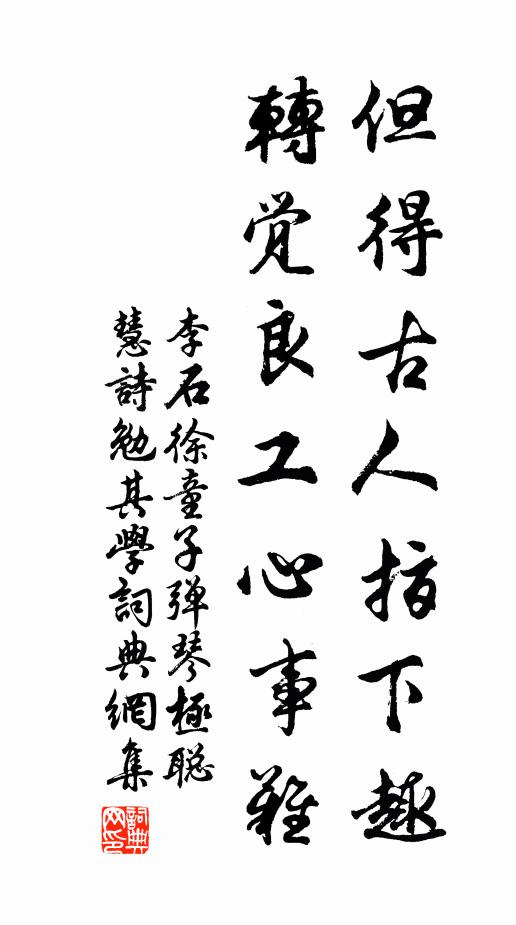 但得古人指下趣
轉覚良工心事難
李石徐童子弹琴極聪
慧詩勉其學詞典網集
詞典网印